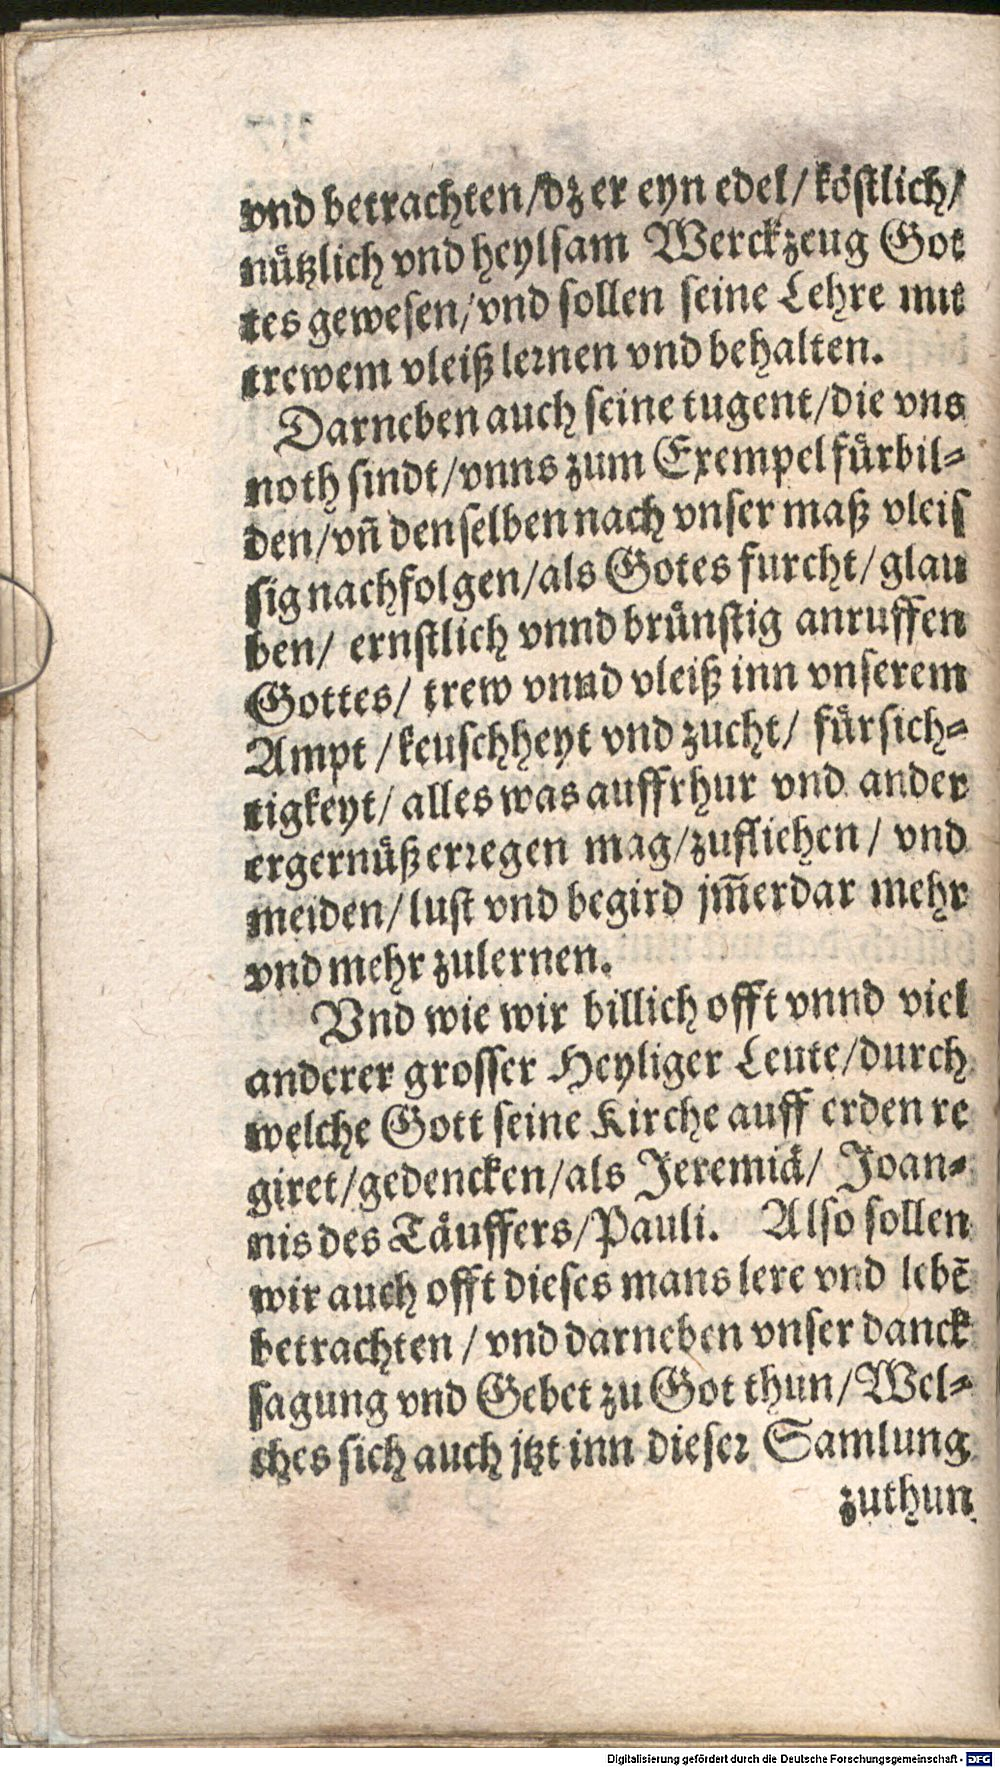 vnd betrachten/dz er eyn edel/ köſtlich/
nuͤtzlich vnd heylſam Werckzeug Got
tes geweſen/vnd ſollen ſeine Lehre mit
trewem vleiß lernen vnd behalten.
Darneben auch ſeine tugent/die vns
noth ſindt/vnns zum Exempel fuͤrbil-
den/vñ denſelben nach vnſer maß vleiſ
ſig nachfolgen/als Gotes furcht/glau
ben/ ernſtlich vnnd bruͤnſtig anruffen
Gottes/ trew vnnd vleiß inn vnſerem
Ampt /keuſchheyt vnd zucht/ fuͤrſich-
tigkeyt/ alles was auffrhur vnd ander
ergernuͤß erꝛegen mag/zufliehen/ vnd
meiden/luſt vnd begird jm̃erdar mehr
vnd mehr zulernen.
Vnd wie wir billich offt vnnd viel
anderer groſſer Heyliger Leute/durch
welche Gott ſeine Kirche auff erden re
giret/gedencken/als Jeremiaͤ/ Joan-
nis des Taͤuffers/Pauli. Alſo ſollen
wir auch offt dieſes mans lere vnd lebẽ
betrachten / vnd darneben vnſer danck
ſagung vnd Gebet zu Got thun/Wel-
ches ſich auch jtzt inn dieſeꝛ Samlung
zuthun
Digitalisierung gefördert durch die Deutsche Forschungsgemeinschaft - DFG